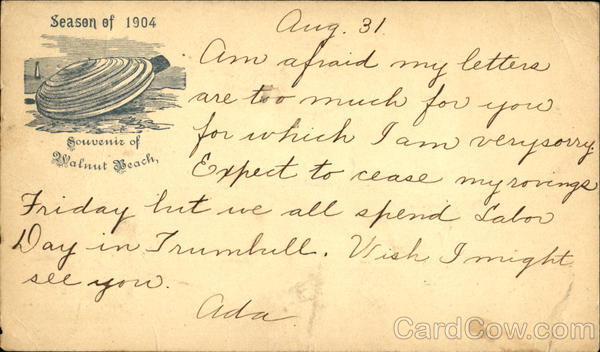 Season of 1904
Souvenir of
Walnut Beach,
Aug. 31.
Am afraid my letters
are too much for you
for which I am very sorry.
Expect to cease my rovings
Friday but we all spend Labor
Day in Trumbull. Wish I might
see you.
Ada
CardCow.com